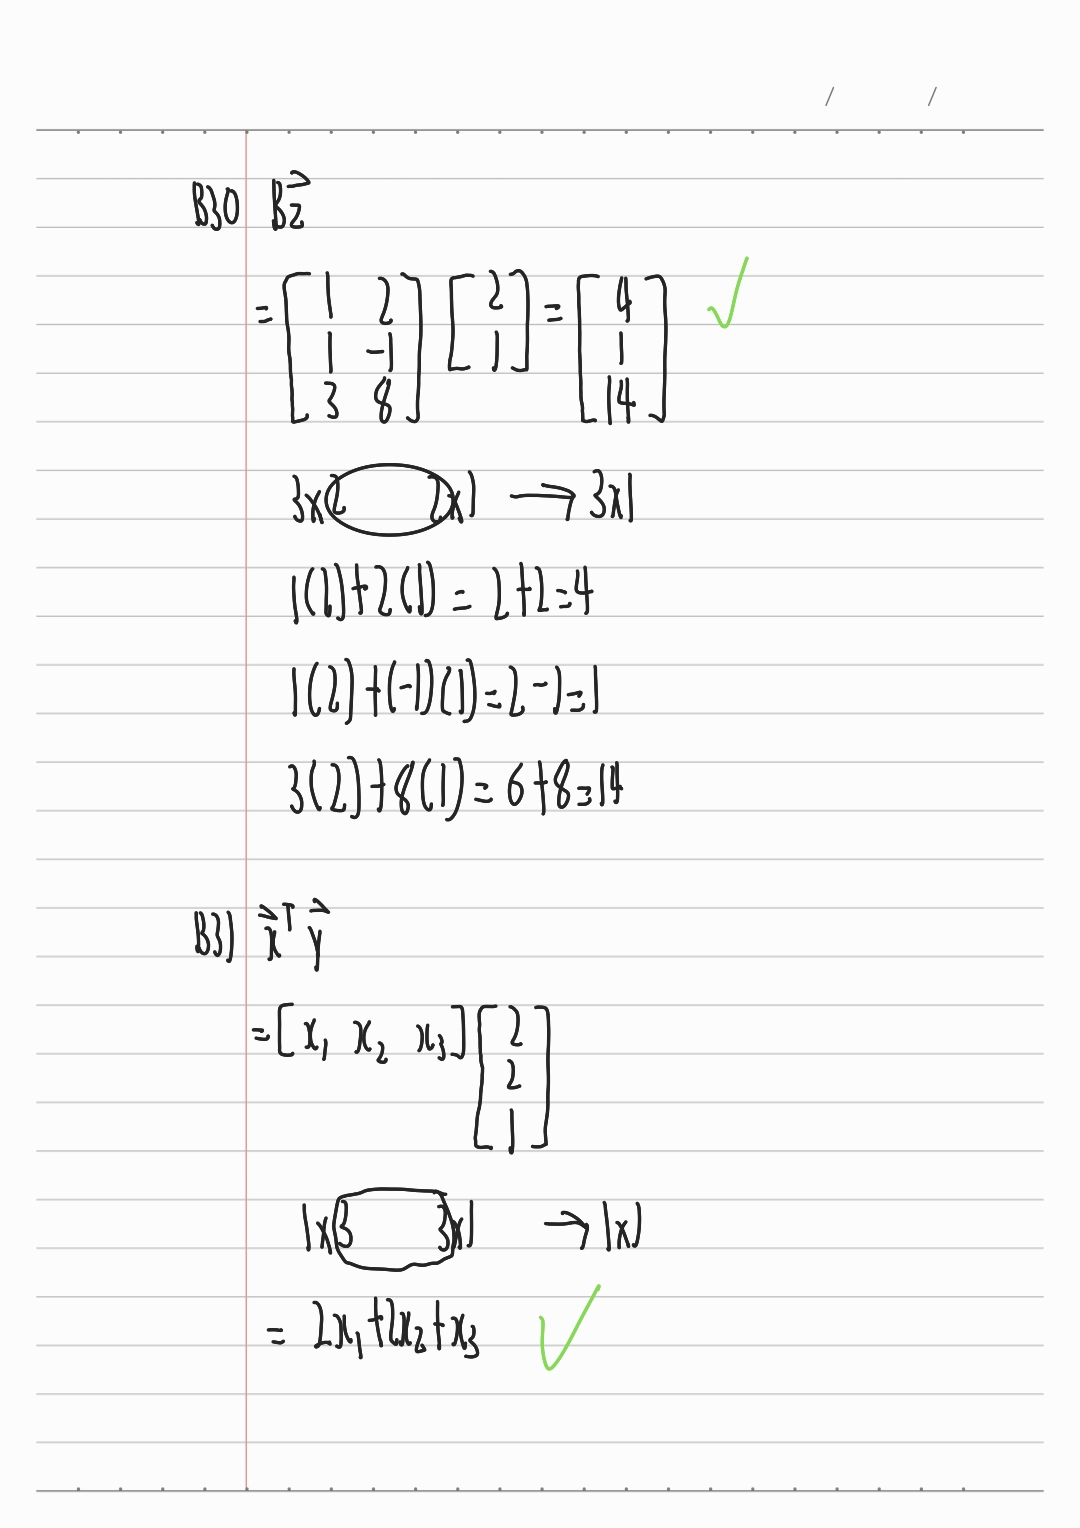 B30 B\vec{z}
= \begin{bmatrix} 1 & 2 \\ 1 & -1 \\ 3 & 8 \end{bmatrix} \begin{bmatrix} 2 \\ 1 \end{bmatrix} = \begin{bmatrix} 4 \\ 1 \\ 14 \end{bmatrix} ✓
3x2 2x1 → 3x1
1(2)+2(1) = 2+2=4
1(2)+(-1)(1)=2-1=1
3(2)+8(1)=6+8=14
B31 \vec{x}^T \vec{y}
= [x_1 x_2 x_3] \begin{bmatrix} 2 \\ 2 \\ 1 \end{bmatrix}
1x3 3x1 → 1x1
= 2x_1+2x_2+x_3 ✓